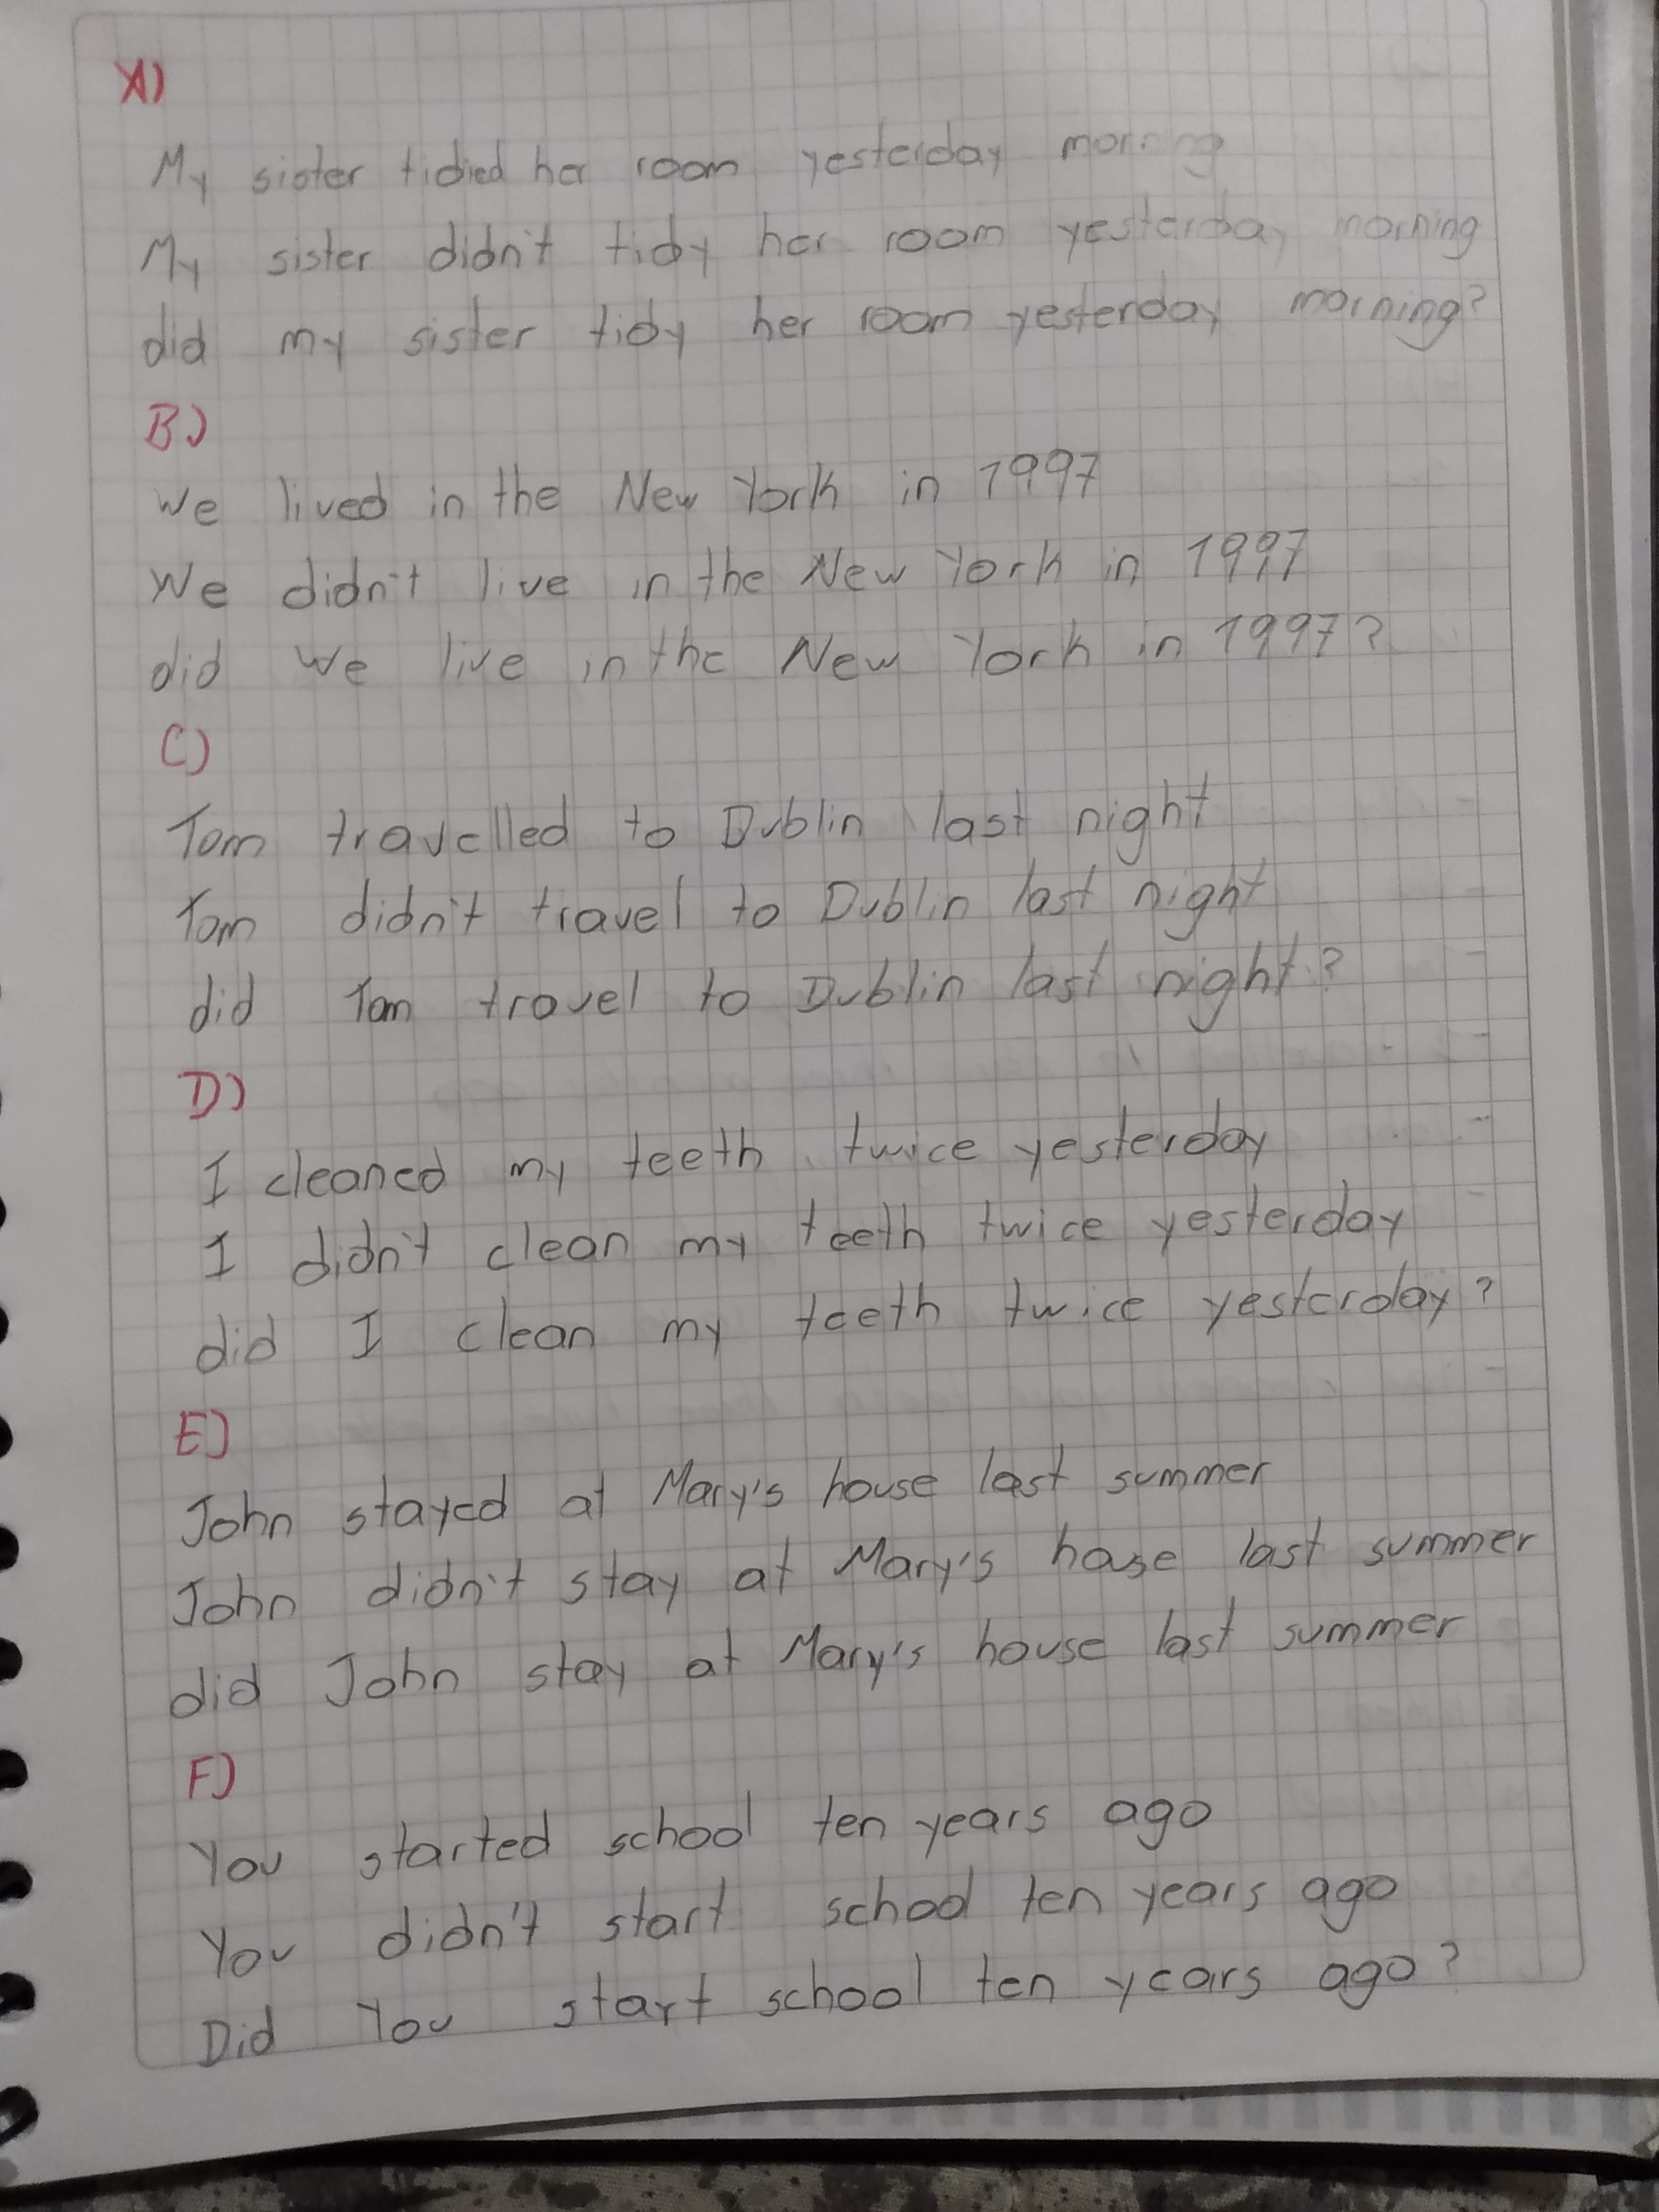 A)
My sister tidied her room yesterday morning
My sister didn't tidy her room yesterday morning
did my sister tidy her room yesterday morning?
B)
We lived in the New York in 1997
We didn't live in the New York in 1997
did we live in the New York in 1997?
C)
Tom travelled to Dublin last night
Tom didn't travel to Dublin last night
did Tom travel to Dublin last night?
D)
I cleaned my teeth twice yesterday
I didn't clean my teeth twice yesterday
did I clean my teeth twice yesterday?
E)
John stayed at Mary's house last summer
John didn't stay at Mary's house last summer
did John stay at Mary's house last summer
F)
You started school ten years ago
You didn't start school ten years ago
Did You start school ten years ago?